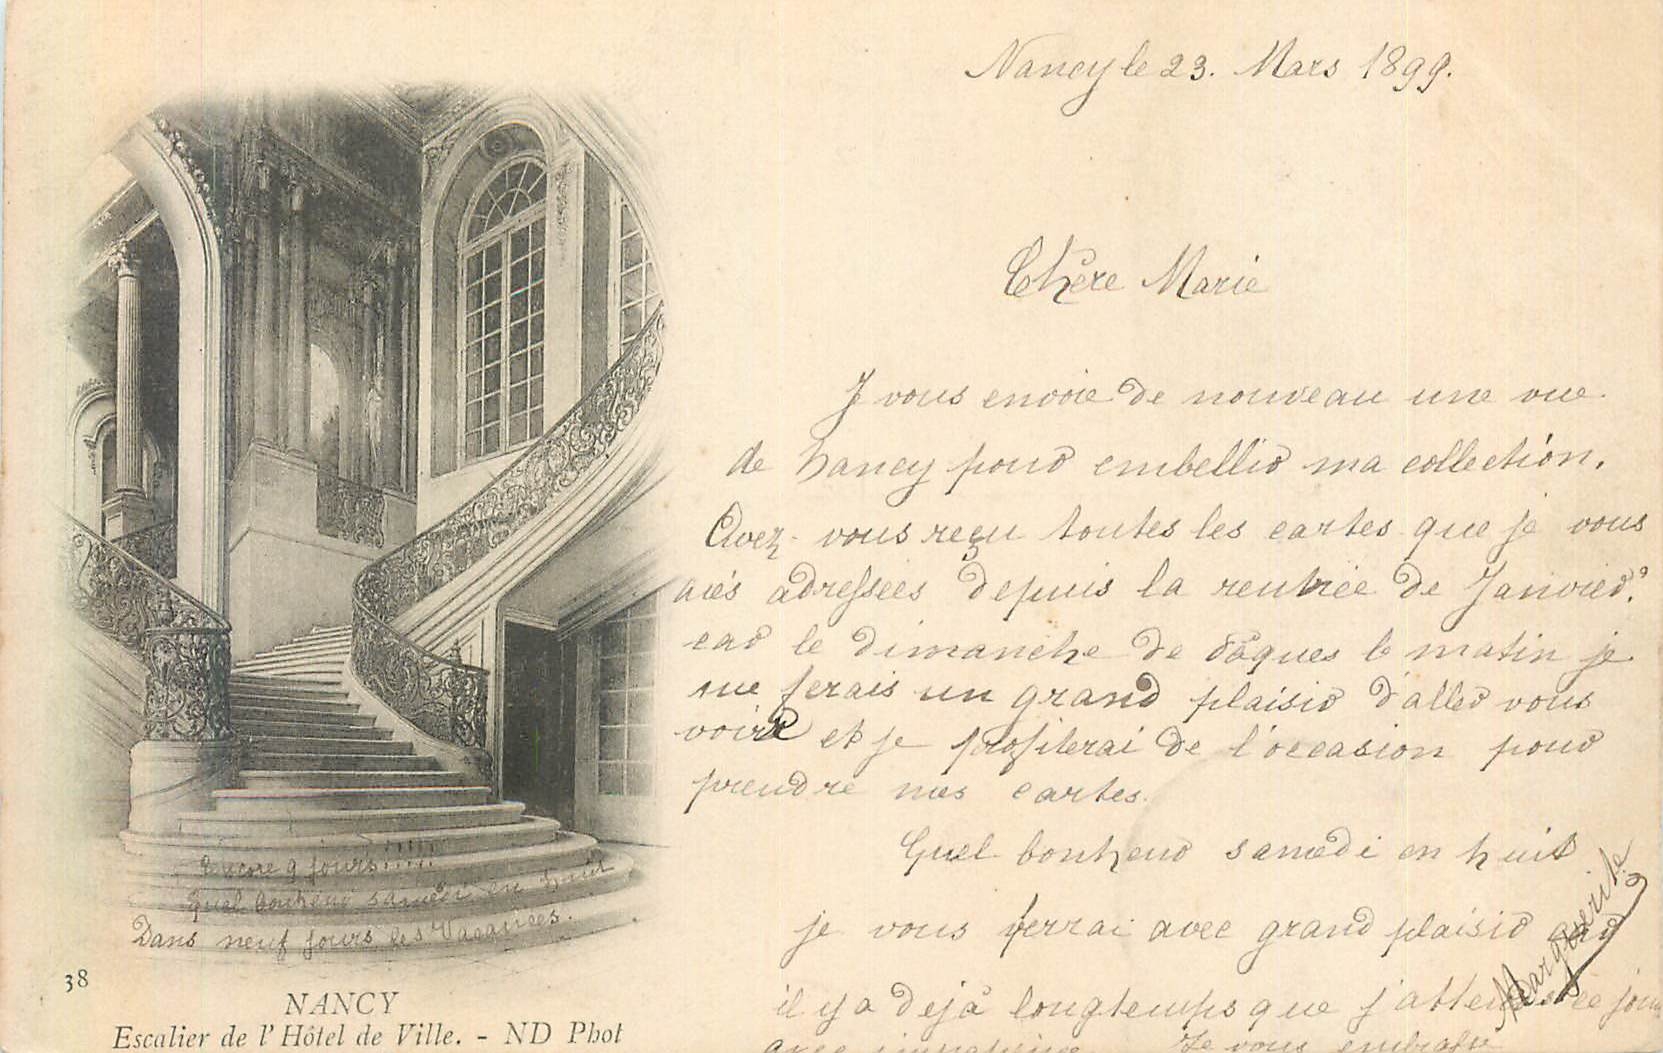 Nancy le 23. Mars 1899.
Chère Marie
J vous envoie de nouveau une vue
de Nancy pour embellir ma collection.
Avez-vous reçu toutes les cartes que je vous
ai adressées depuis la rentrée de Janvier?
car le dimanche de Pâques le matin je
me ferais un grand plaisir d'aller vous
voir et je profiterai de l'occasion pour
prendre mes cartes.
Quel bonheur samedi en huit
je vous verrai avec grand plaisir car
il y a déjà longtemps que j'attends ce jour
avec impatience. Je vous embrasse
Marguerite
Encore 9 jours!!!!!
Quel bonheur samedi en huit
Dans neuf jours les Vacances.
38
NANCY
Escalier de l'Hôtel de Ville. - ND Phot